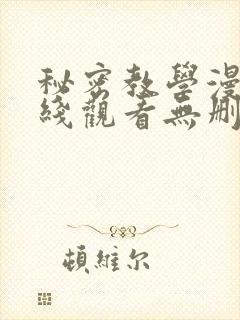 秘密教學漫
綫觀看無刪
頓維尔